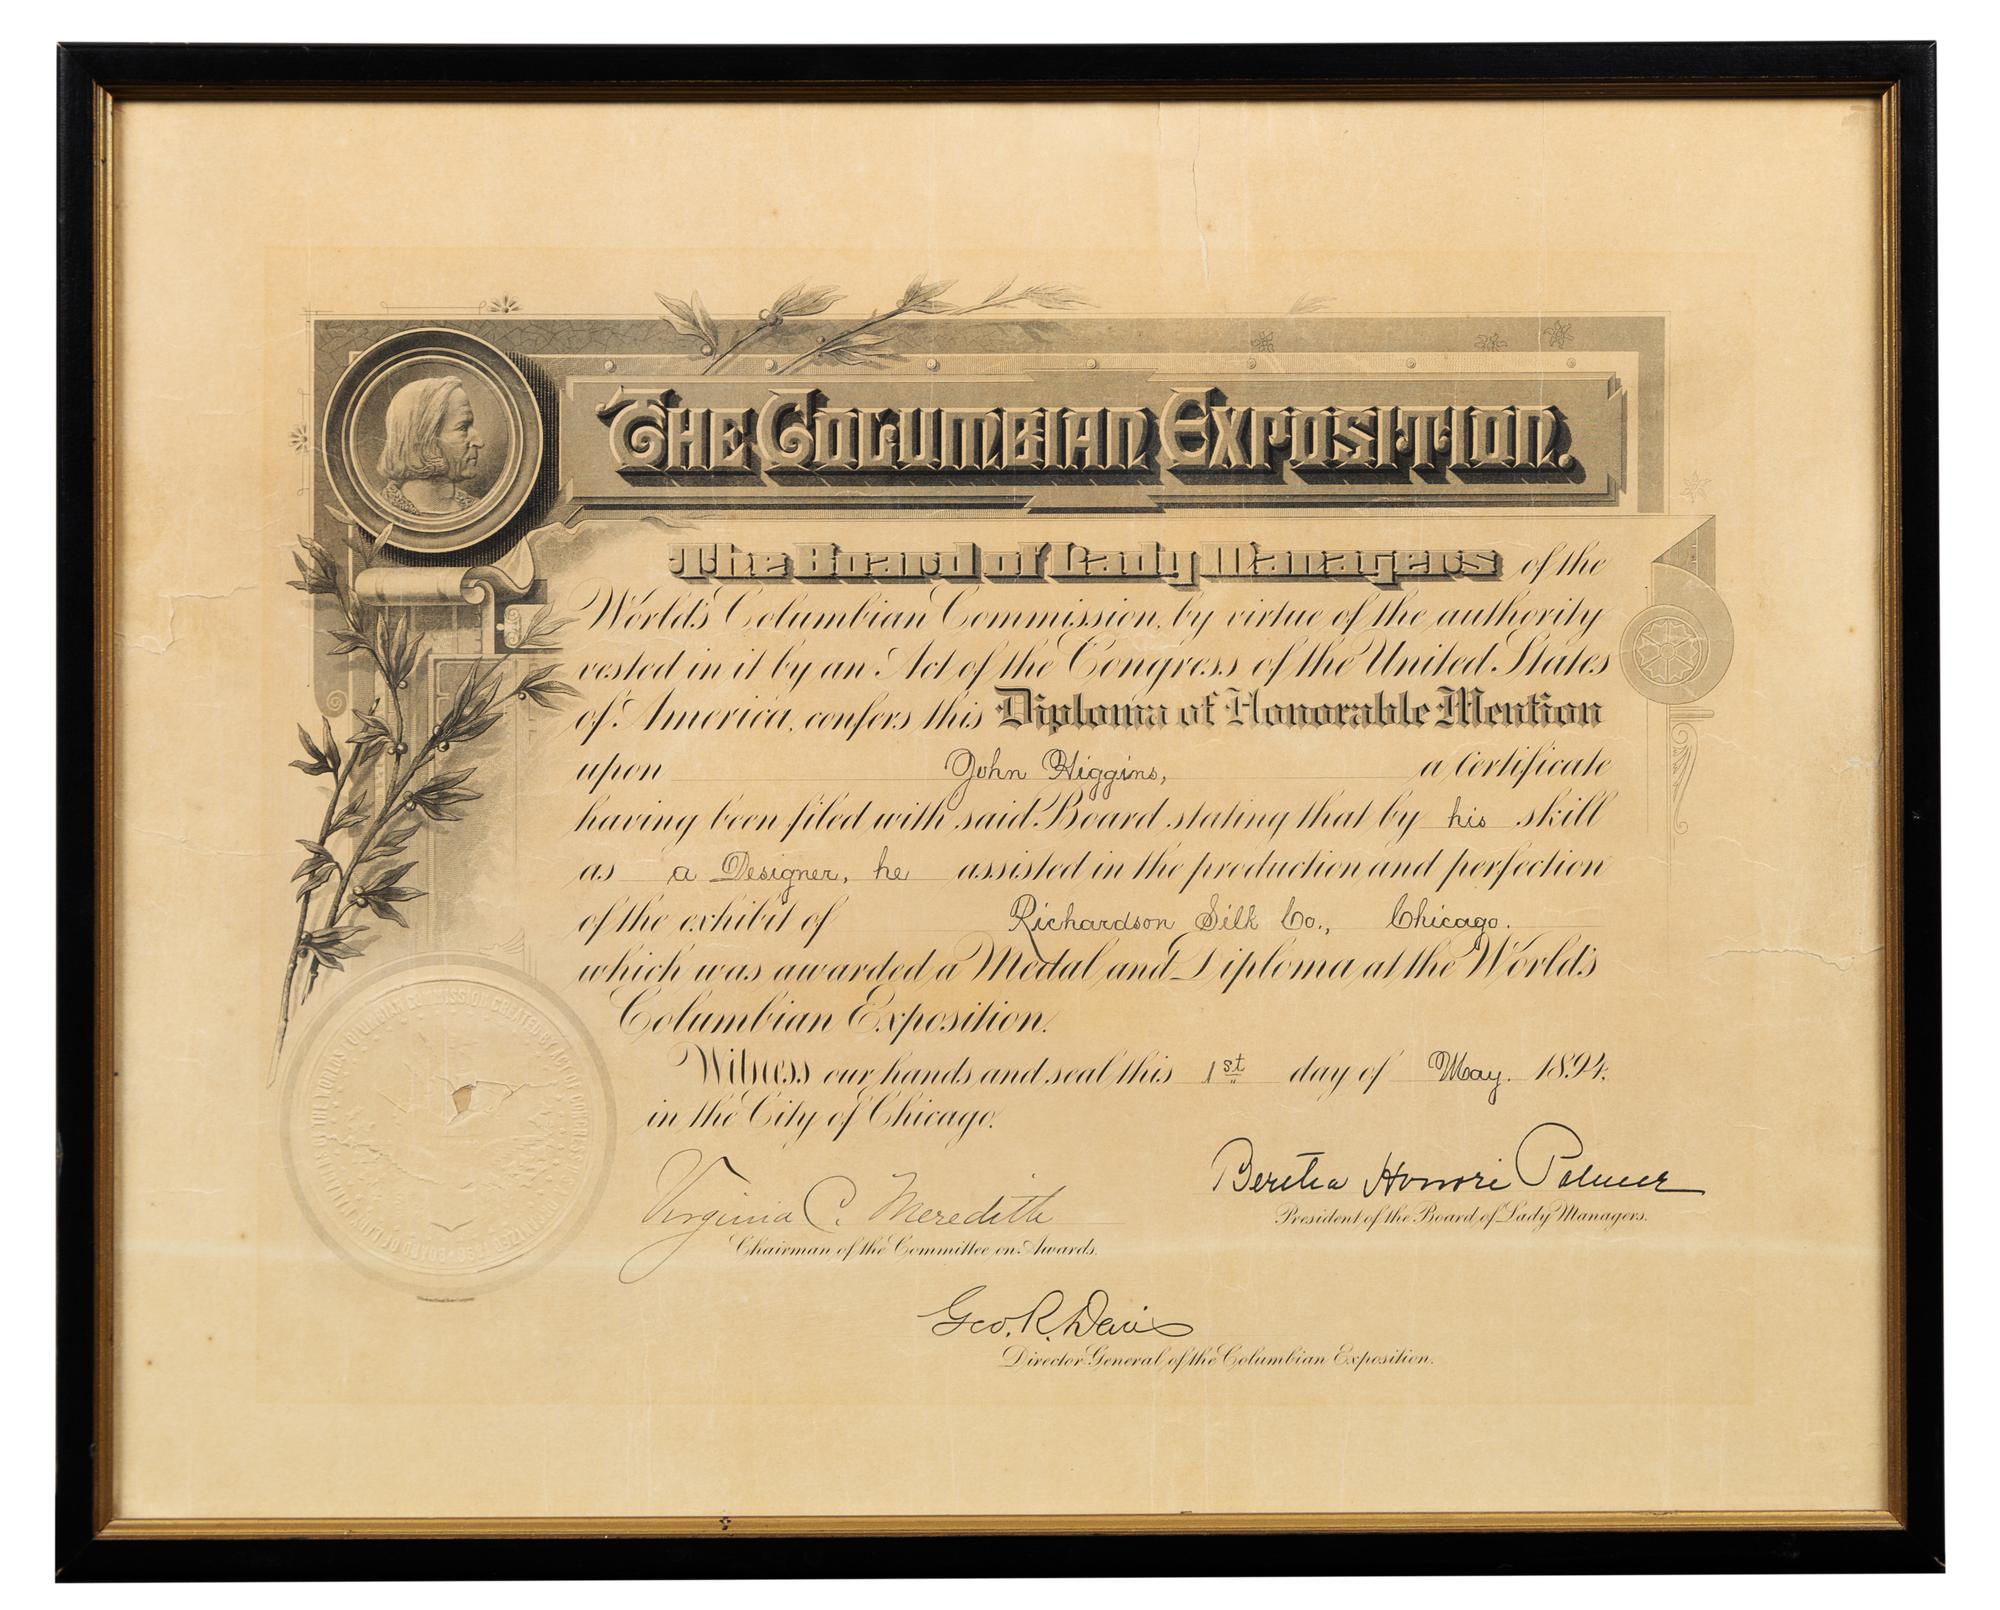 The Columbian Exposition.
The Board of Lady Managers of the
World's Columbian Commission, by virtue of the authority
vested in it by an Act of the Congress of the United States
of America, confers this Diploma of Honorable Mention
upon John Higgins, a certificate
having been filed with said Board stating that by his skill
as a Designer, he assisted in the production and perfection
of the exhibit of Richardson Silk Co., Chicago.
which was awarded a Medal and Diploma at the World's
Columbian Exposition.
Witness our hands and seal this 1st day of May. 1894.
in the City of Chicago.
Bertha Honoré Palmer
President of the Board of Lady Managers.
Virginia C. Meredith
Chairman of the Committee on Awards.
Geo. R. Davis
Director General of the Columbian Exposition.
COLUMBIAN COMMISSION CREATED BY ACT OF CONGRESS